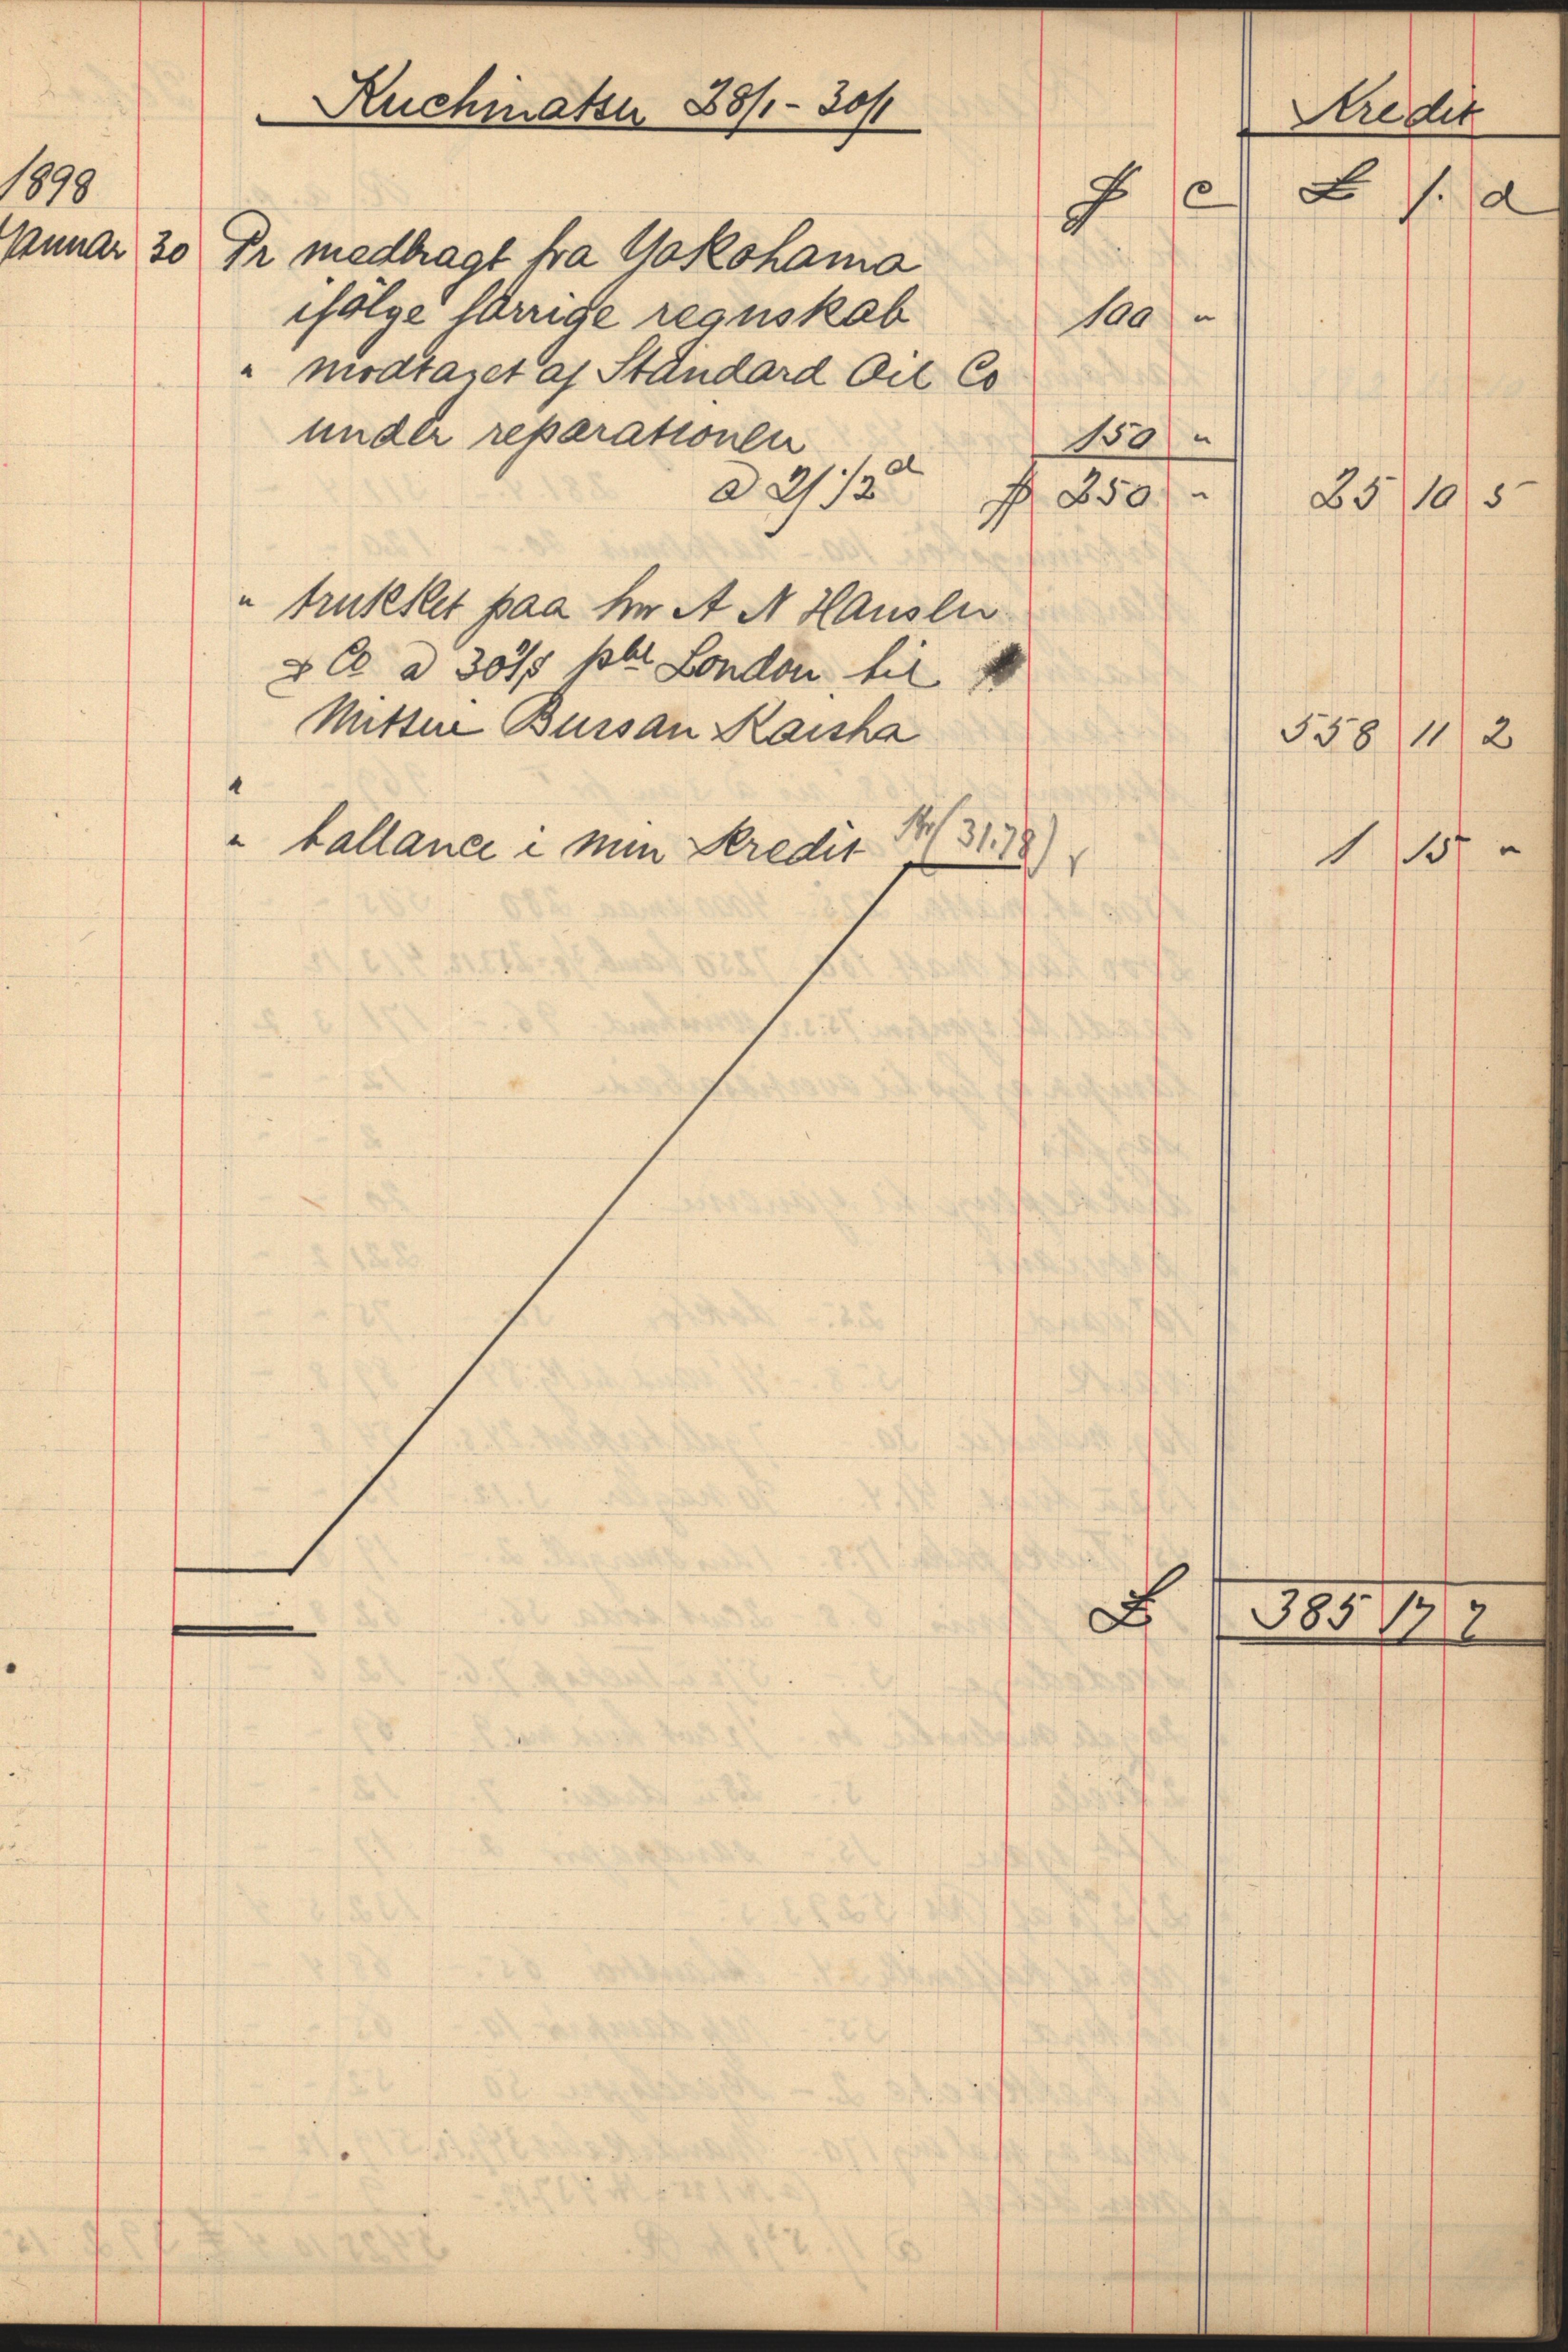 Kuchinatsu 28/1 - 30/1 Kredit
1898 $ c £ s. d
Januar 30 Pr medbragt fra Yokohama
ifölge forrige regnskab 100 "
" modtaget af Standard Oil Co
under reparationen 150 "
a 2/ 1/2 d $ 250 " 25 10 5
" trukket paa hrr A N Hansen
& Co a 30 d/s pbl London til
Mittsui Bussan Kaisha 358 11 2
"
" ballance i min kredit Kr (31.78) 1 15 "
£ 385 17 7